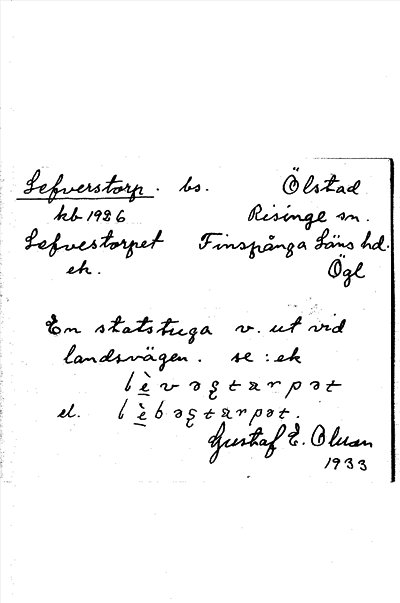 Lefverstorp. bs. Ölstad
kb 1926 Risinge sn.
Lefvestorpet Finspånga Läns hd.
ek. Ögl
En statstuga v. ut vid
landsvägen. se: ek
lèvəʂtarpət
el. lèbəʂtarpət.
Gustaf E. Olsson
1933